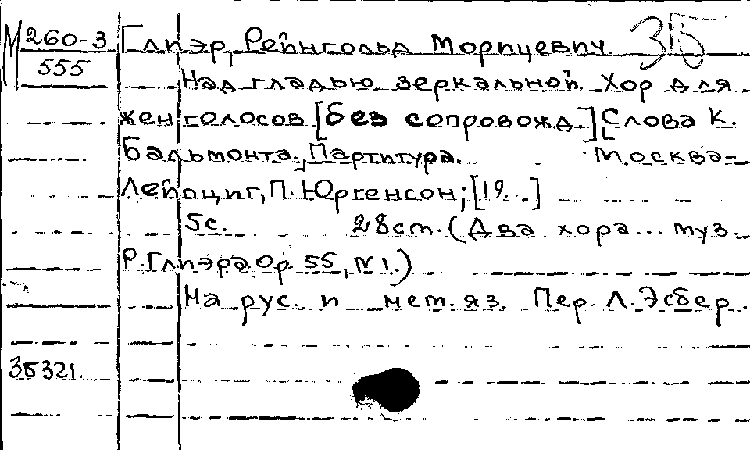 М 260-3 Глиэр, Рейнгольд Морицевич. 35
555
Над гладью зеркальной. Хор для
жен голосов [без сопровожд.] Слова К.
Бальмонта. Партитура. Москва-
Лейпциг, П. Юргенсон; [19..]
5с. 28см. (Два хора... муз.
Р. Глиэра Ор 55, №1.)
На рус. и нем. яз. Пер Л. Эсбер.
35321.